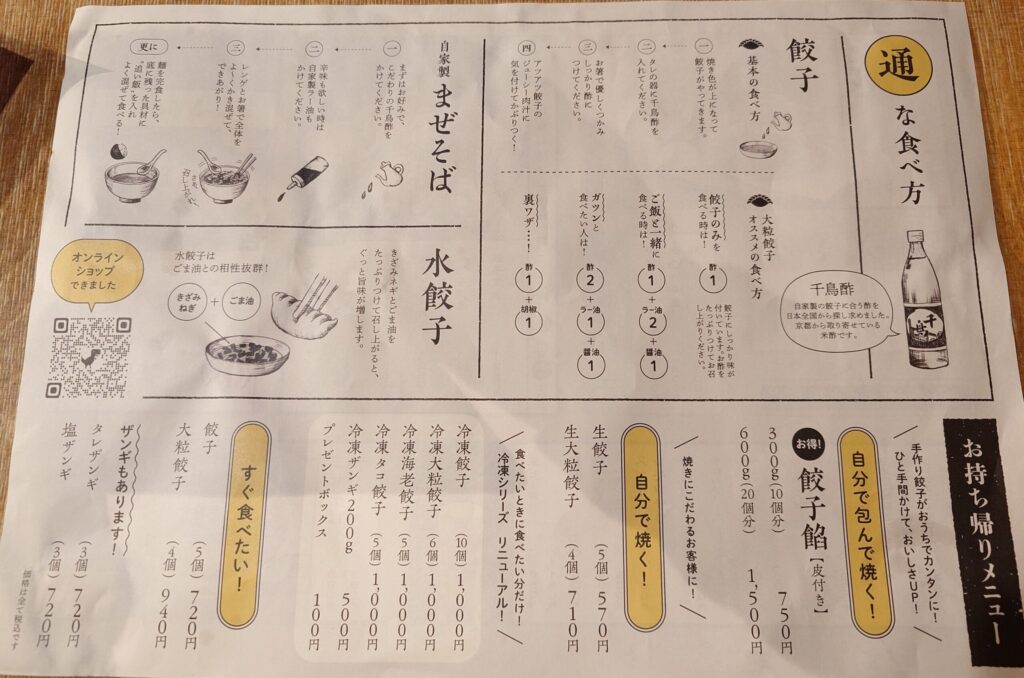 通な食べ方
千鳥酢
自家製の餃子に合う酢を
日本全国から探し求めました。
京都から取り寄せている
米酢です。
千鳥
餃子
基本の食べ方
一
焼き色が上になって
餃子がやってきます。
二
タレの器に千鳥酢を
入れてください。
三
お箸で優しくつかみ
しっかり酢に
つけてください。
四
アツアツ餃子の
ジューシー肉汁に
気を付けてかぶりつく！
大粒餃子
オススメの食べ方
餃子のみを
食べる時は！
酢1
餃子にしっかり味が
付いています。お酢を
たっぷりつけてお召
し上がりください。
ご飯と一緒に
食べる時は！
酢1+ラー油2+醤油1
ガツンと
食べたい人は！
酢2+ラー油1+醤油1
裏ワザ…！
酢1+胡椒1
自家製
まぜそば
一
まずはお好みで、
こだわりの千鳥酢を
かけてください。
二
辛味も欲しい時は
自家製ラー油も
かけてください。
三
レンゲとお箸で全体を
よ～くかき混ぜて、
できあがり！
さぁ、
召し上がれ。
更に
麺を完食したら、
底に残った具材に
“追い飯”を入れ
よく混ぜて食べる！
水餃子
きざみネギとごま油を
たっぷりつけて召し上がると、
ぐっと旨味が増します。
水餃子は
ごま油との相性抜群！
きざみ
ねぎ
+
ごま油
オンライン
ショップ
できました
お持ち帰りメニュー
手作り餃子がおうちでカンタンに！
ひと手間かけて、おいしさUP！
自分で包んで焼く！
お得！
餃子餡【皮付き】
300g(10個分) 750円
600g(20個分) 1,500円
焼きにこだわるお客様に！
自分で焼く！
生餃子 (5個) 570円
生大粒餃子 (4個) 710円
食べたいときに食べたい分だけ！
冷凍シリーズ リニューアル！
冷凍餃子 (10個) 1,000円
冷凍大粒餃子 (6個) 1,000円
冷凍海老餃子 (5個) 1,000円
冷凍タコ餃子 (5個) 1,000円
冷凍ザンギ200g 500円
プレゼントボックス 100円
すぐ食べたい！
餃子 (5個) 720円
大粒餃子 (4個) 940円
ザンギもあります！
タレザンギ (3個) 720円
塩ザンギ (3個) 720円
価格は全て税込です